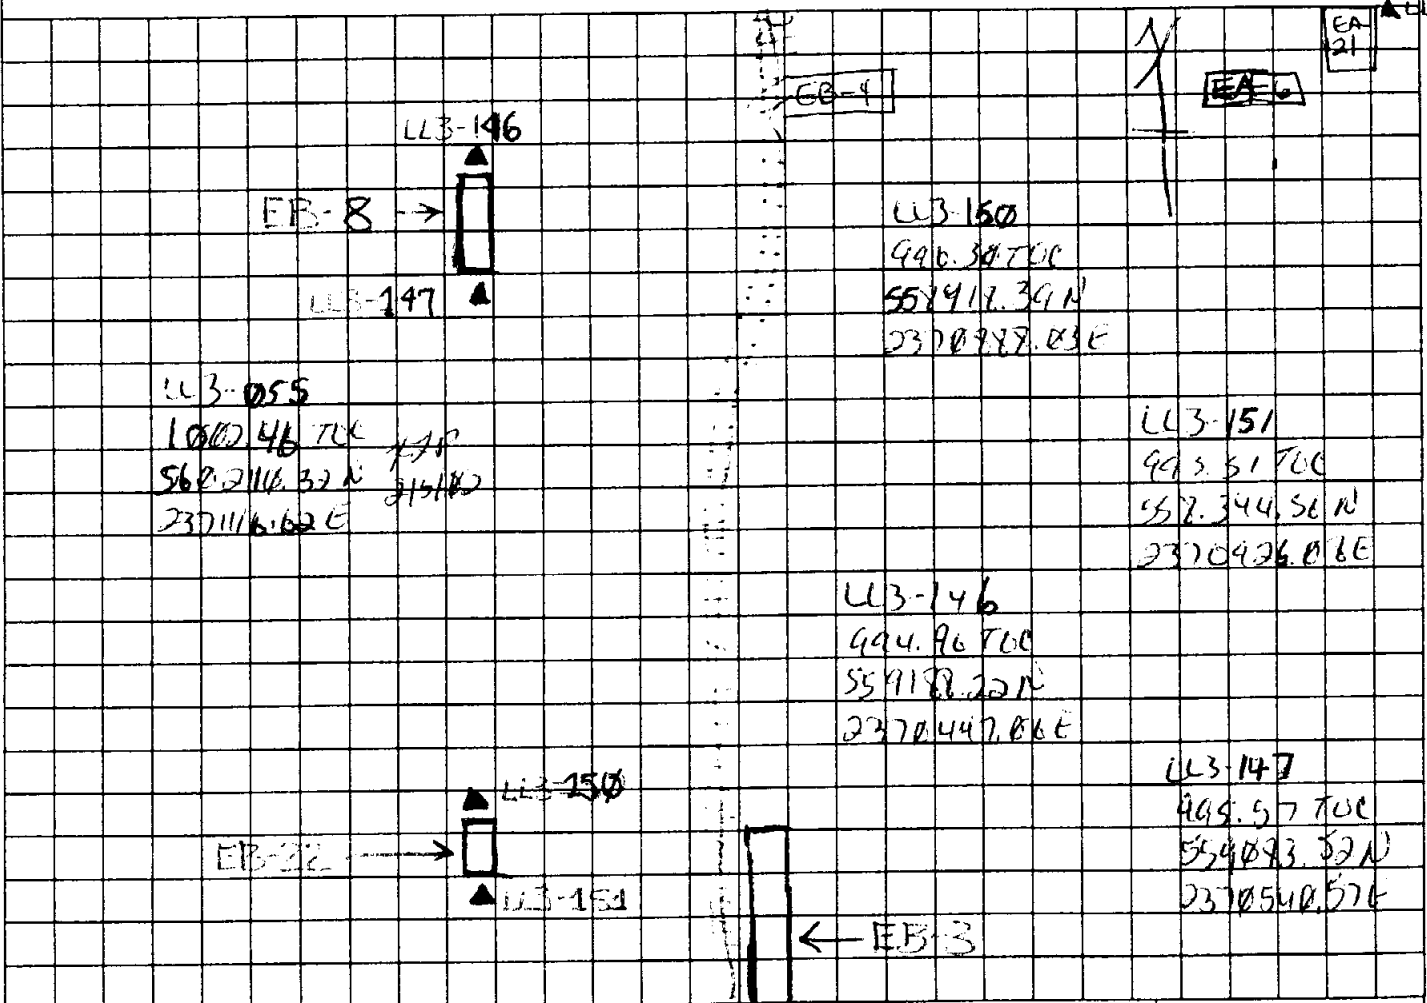 EA-
21
EB-4
EA-6
LL3-146
EB-8
LL3-147
LL3-150
996.30 TOC
2370888.03E
LL3-055
1002.46 TOC
LL3-151
993.51 TOC
558.344.56 N
2370926.06E
LL3-146
994.96 TOC
559188.22N
2370447.06E
LL3-147
995.57 TOC
559083.52N
2370540.57E
LL3-150
EB-22
LL3-151
EB-3